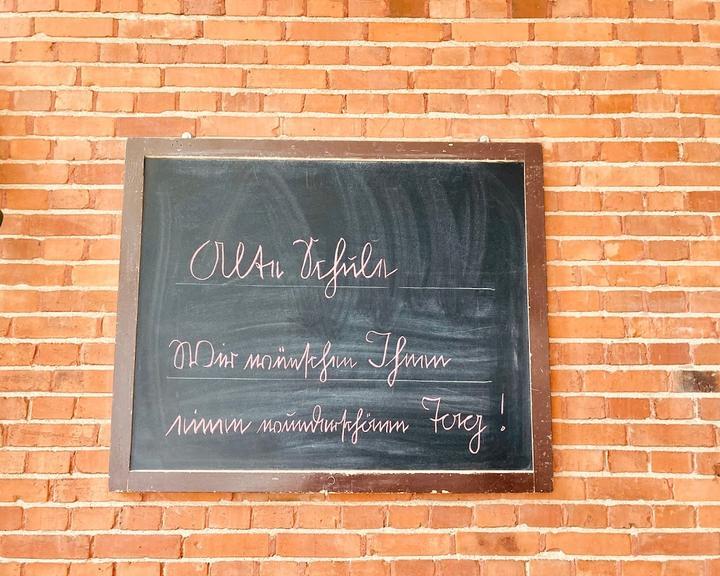 Alte Schule
Wir wünschen Ihnen
einen wunderschönen Tag!